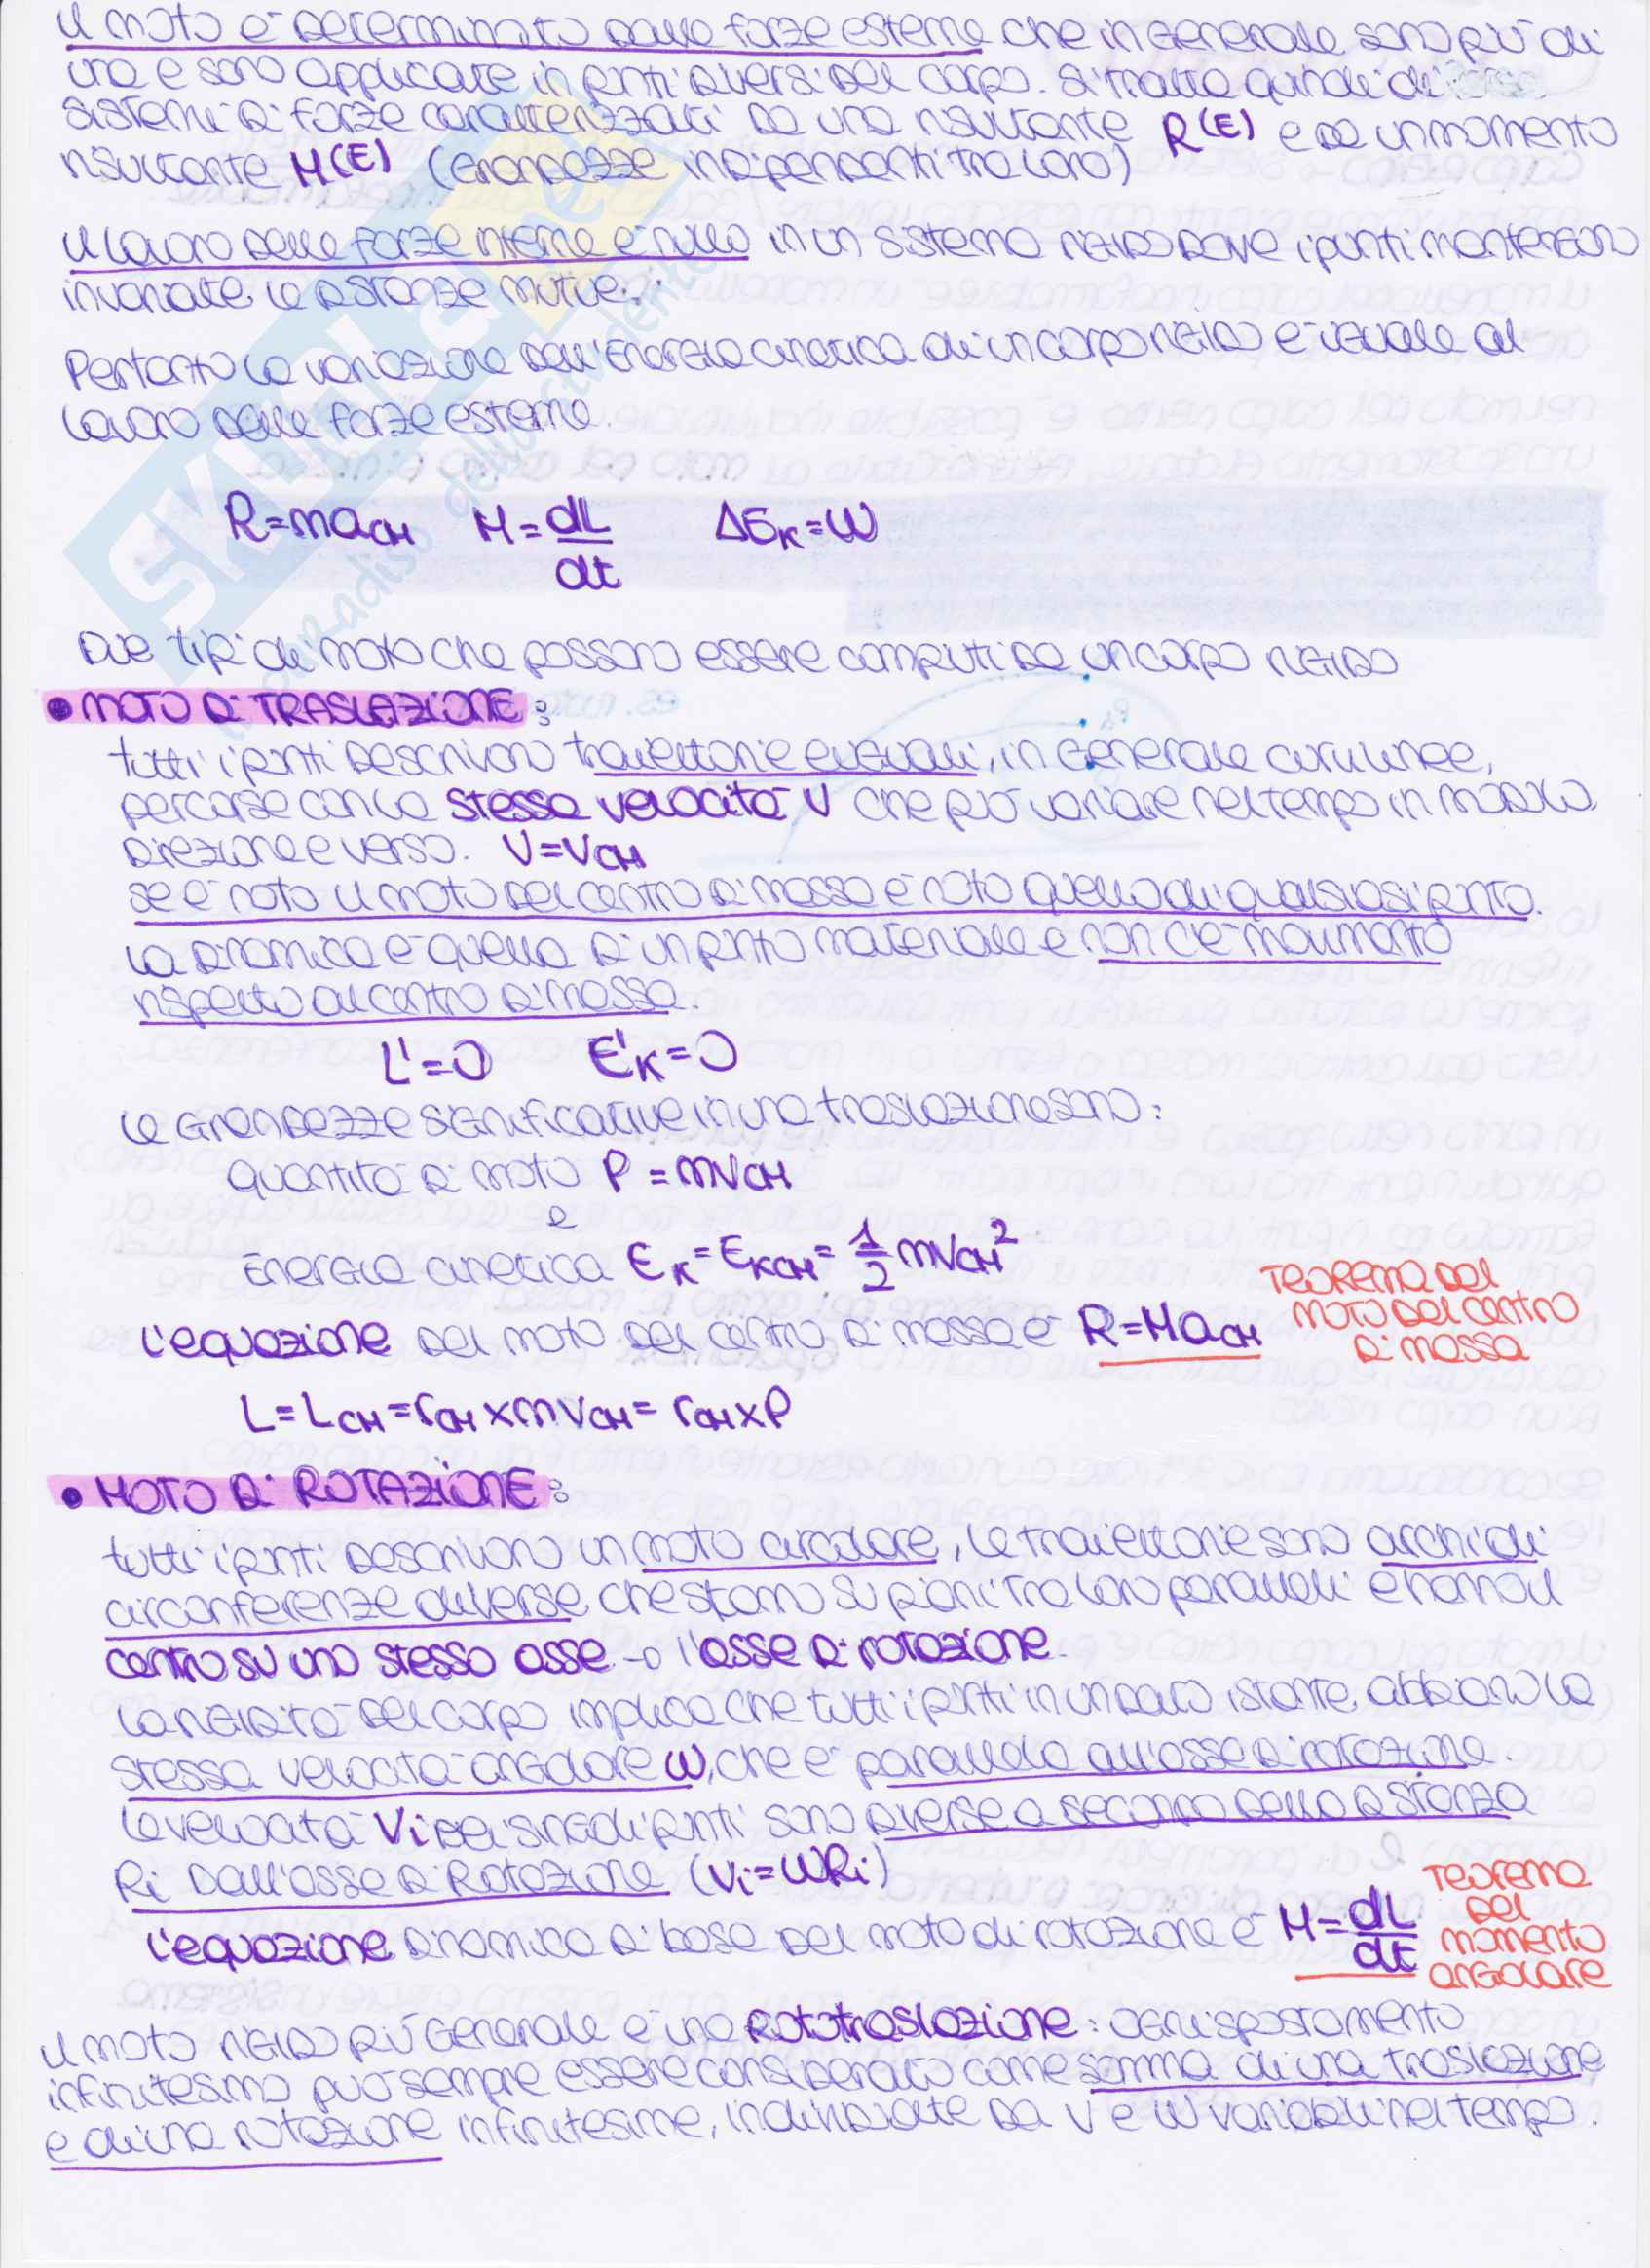 Il moto è determinato dalle forze esterne che in generale sono più di
una e sono applicate in punti diversi del corpo. Si tratta quindi di
sistemi di forze caratterizzati da una risultante R(E) e da un momento
risultante M(E) (grandezze indipendenti tra loro)
Il lavoro delle forze interne è nullo in un sistema rigido dove i punti mantengono
invariate le distanze mutue.
Pertanto la variazione dell'energia cinetica di un corpo rigido è uguale al
lavoro delle forze esterne.
R=maCM M=dL/dt ΔEK=W
Due tipi di moto che possono essere compiuti da un corpo rigido
• MOTO DI TRASLAZIONE:
tutti i punti descrivono traiettorie eguali, in generale curvilinee,
percorse con la stessa velocità v che può variare nel tempo in modulo,
direzione e verso. V=VCM
se è noto il moto del centro di massa è noto quello di qualsiasi punto.
La dinamica è quella di un punto materiale e non c'è movimento
rispetto al centro di massa.
L'=0 E'K=0
Le grandezze significative in una traslazione sono:
quantità di moto P=mVCM
e
Energia cinetica EK=EKCM=1/2 mVCM²
L'equazione del moto del centro di massa è R=MaCM
TEOREMA DEL
MOTO DEL CENTRO
DI MASSA
L=LCM=rCM×mVCM=rCM×P
• MOTO DI ROTAZIONE:
tutti i punti descrivono un moto circolare, le traiettorie sono archi di
circonferenze diverse, che stanno su piani tra loro paralleli e hanno il
centro su uno stesso asse → l'asse di rotazione.
La rigidità del corpo implica che tutti i punti in un dato istante, abbiano la
stessa velocità angolare ω, che è parallela all'asse di rotazione.
Le velocità Vi dei singoli punti sono diverse a seconda della distanza
Ri dall'asse di Rotazione (Vi=ωRi)
L'equazione dinamica di base del moto di rotazione è M=dL/dt
TEOREMA
DEL
MOMENTO
ANGOLARE
Il moto rigido più generale è una Rototraslazione: ogni spostamento
infinitesimo può sempre essere considerato come somma di una traslazione
e di una rotazione infinitesime, individuate da v e ω variabili nel tempo.